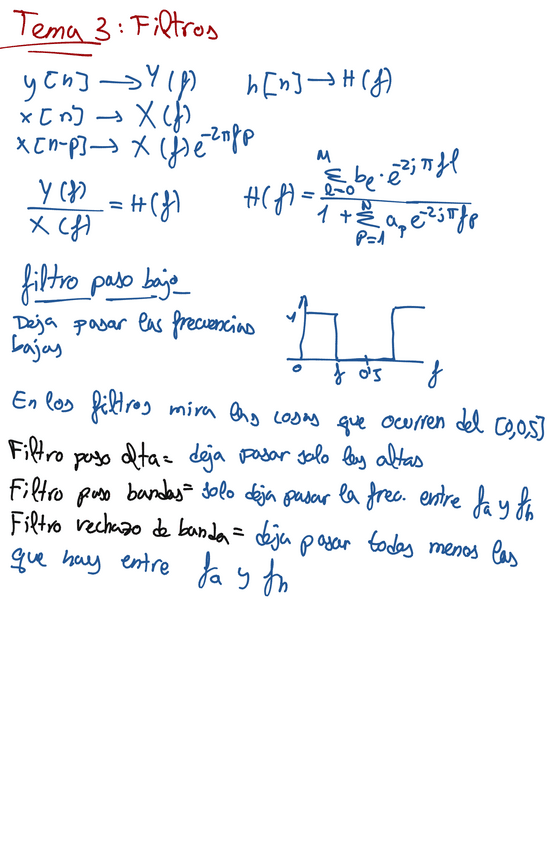 Tema 3: Filtros
y[n] → Y(f)   h[n] → H(f)
x[n] → X(f)
x[n-p] → X(f)e^{-2πfp}
Y(f)/X(f) = H(f)   H(f) = (∑_{l=0}^{M} b_l · e^{-2jπfl}) / (1 + ∑_{p=1}^{N} a_p e^{-2jπfp})
filtro paso bajo
Deja pasar las frecuencias
bajas
1
0 f 0'5 f
En los filtros mira las cosas que ocurren del [0,0,5]
Filtro paso alta = deja pasar solo las altas
Filtro paso bandas = solo deja pasar la frec. entre fa y fh
Filtro rechazo de banda = deja pasar todas menos las
que hay entre fa y fh